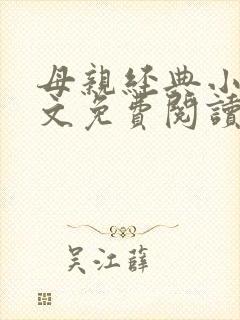 母親經典小
文免費閱讀
吳江薛